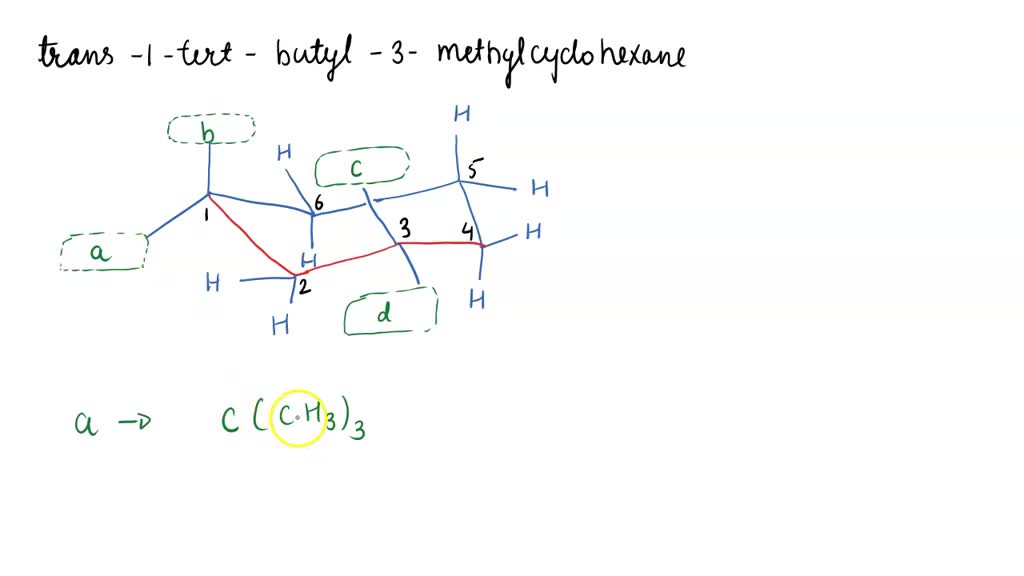 trans -1-tert - butyl -3- methylcyclohexane
b
H
H
c
5
6
H
1
3
4
H
a
H
H
2
H
d
H
a → C (CH3)3